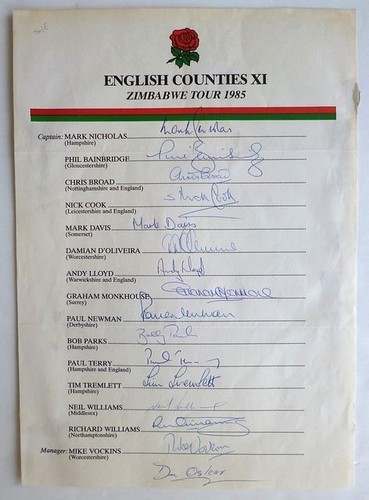 ENGLISH COUNTIES XI
ZIMBABWE TOUR 1985
Captain: MARK NICHOLAS Mark Nicholas
(Hampshire)
PHIL BAINBRIDGE Phil Bainbridge
(Gloucestershire)
CHRIS BROAD Chris Broad
(Nottinghamshire and England)
NICK COOK Nick Cook
(Leicestershire and England)
MARK DAVIS Mark Davis
(Somerset)
DAMIAN D'OLIVEIRA
(Worcestershire)
ANDY LLOYD Andy Lloyd
(Warwickshire and England)
GRAHAM MONKHOUSE Graham Monkhouse
(Surrey)
PAUL NEWMAN Paul Newman
(Derbyshire)
BOB PARKS Bobby Parks
(Hampshire)
PAUL TERRY Paul Terry
(Hampshire and England)
TIM TREMLETT Tim Tremlett
(Hampshire)
NEIL WILLIAMS
(Middlesex)
RICHARD WILLIAMS
(Northamptonshire)
Manager: MIKE VOCKINS Mike Vockins
(Worcestershire)
Don Oslear